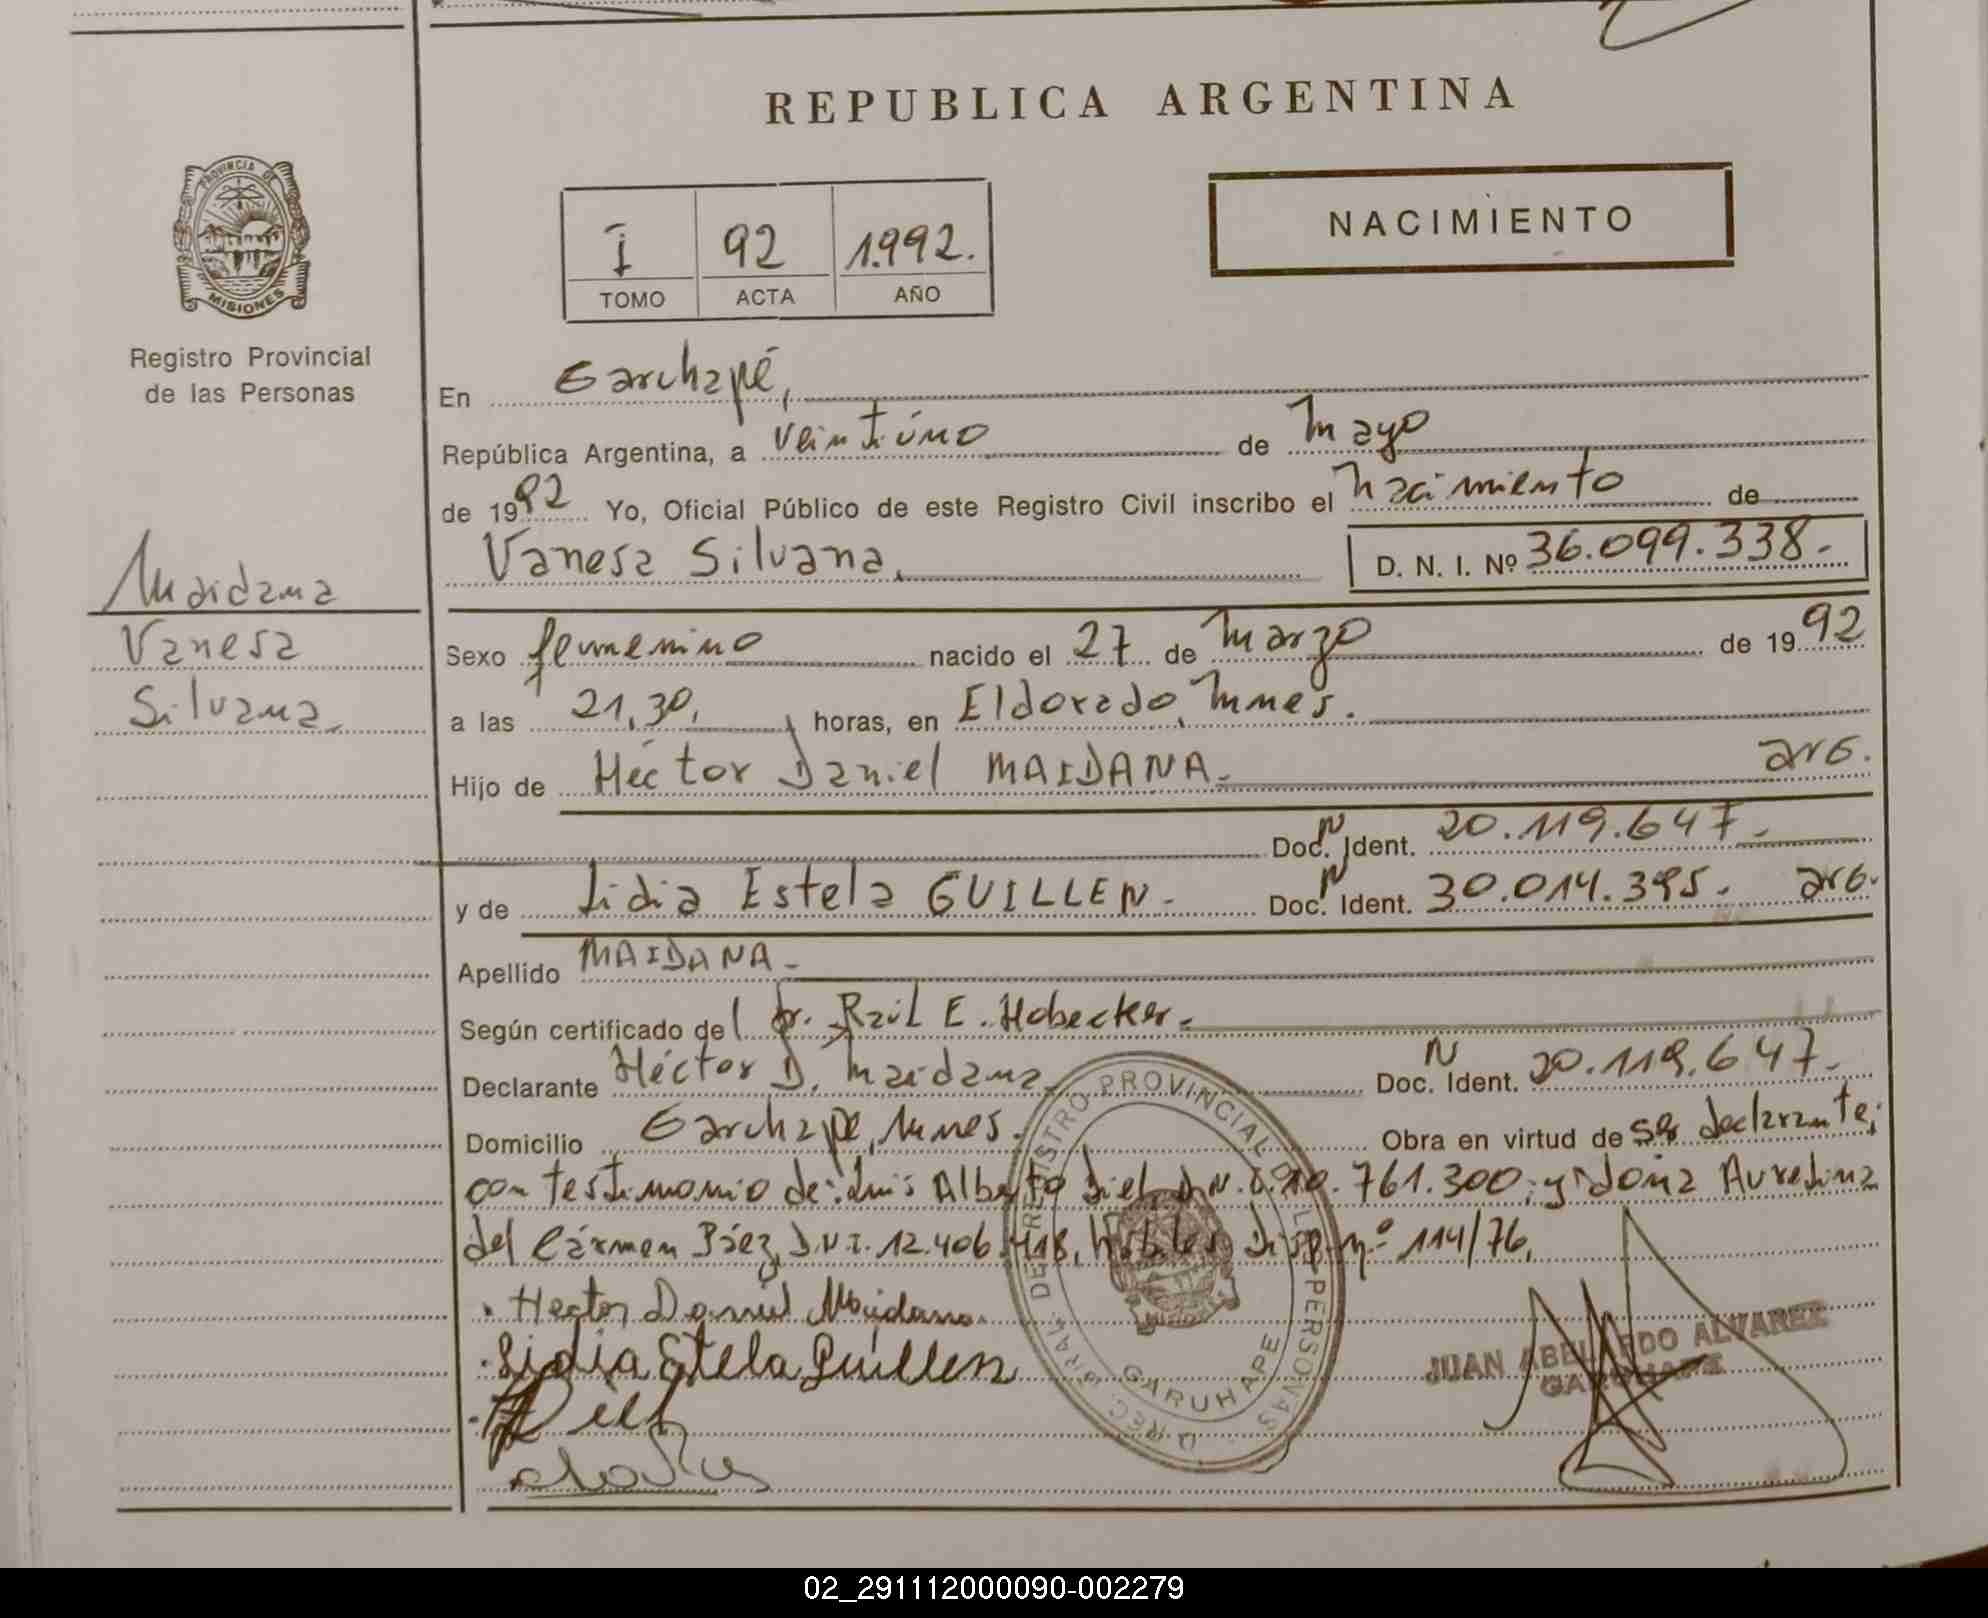 REPUBLICA ARGENTINA
NACIMIENTO
I 92 1.992.
TOMO ACTA AÑO
PROVINCIA DE
MISIONES
Registro Provincial
de las Personas
Maidana
Vanesa
Silvana
En Garuhapé,
República Argentina, a veintiúno de Mayo
de 1992 Yo, Oficial Público de este Registro Civil inscribo el Nacimiento de
Vanesa Silvana. D. N. I. Nº 36.099.338.-
Sexo femenino nacido el 27 de Marzo de 1992
a las 21,30, horas, en Eldorado, Mnes.
Hijo de Héctor Daniel MAIDANA.- arg.
Doc. N Ident. 20.119.647.-
y de Lidia Estela GUILLEN.- Doc. N Ident. 30.014.395.- arg.
Apellido MAIDANA.-
Según certificado del Dr. Raúl E. Hobecker.-
Declarante Héctor D. Maidana Doc. N Ident. 20.119.647.-
Domicilio Garuhape, Mnes. Obra en virtud de ser declarante;
con testimonio de: Luis Alberto Diel D.N.I. 10.761.300; y doña Aurelina
del Cármen Báez, D.N.I. 12.406.418, hábiles Disp. nº 114/76.
Hector Daniel Maidana
Lidia Estela Guillen
Diel
REGISTRO PROVINCIAL DE LAS PERSONAS
GARUHAPE
JUAN ABELARDO ALVAREZ
GARUHAPE
02_291112000090-002279